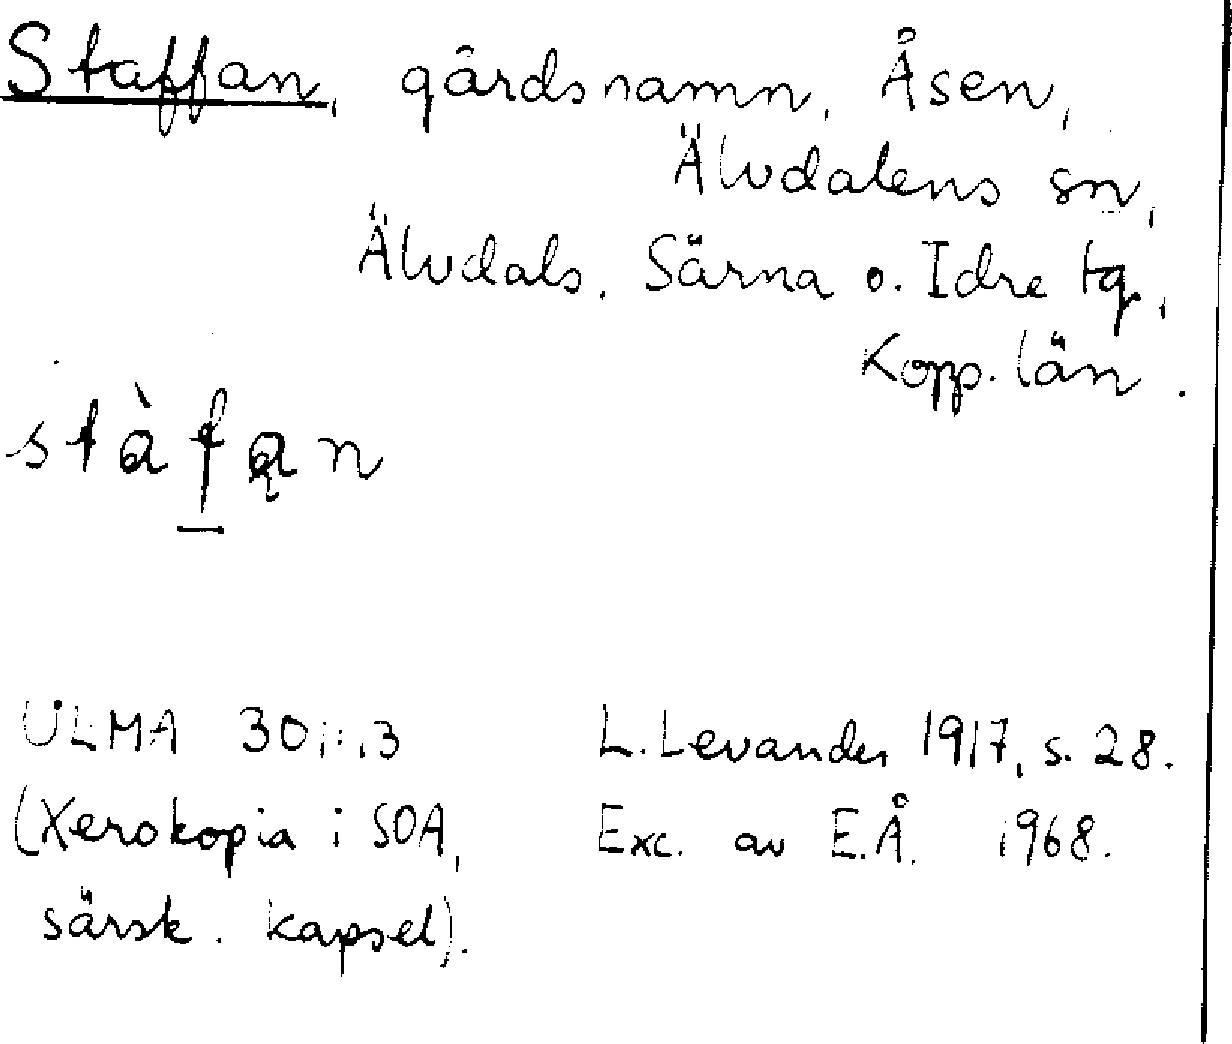 Staffan, gårdsnamn, Åsen,
Älvdalens sn,
Älvdals, Särna o. Idre tg,
Kopp. län.
stàf̲ąn
ULMA
L. Levander 1917, s. 28.
(Xerokopia i SOA,
Exc. av E.Å. 1968.
särsk. kapsel).